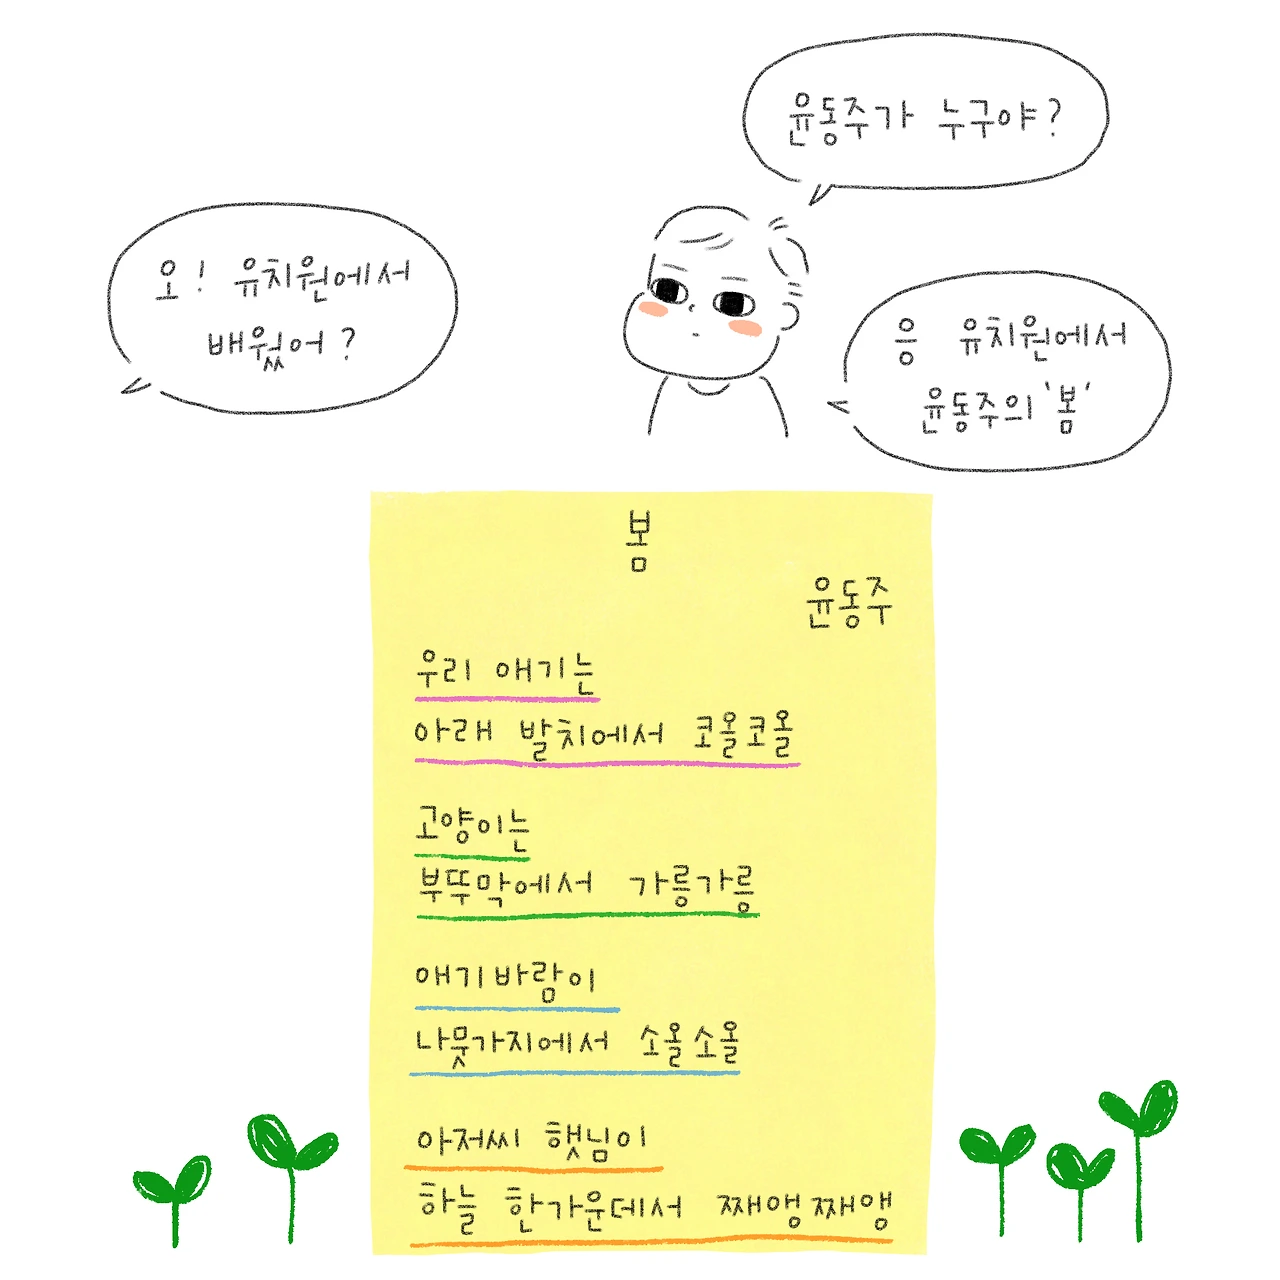 윤동주가 누구야?
오! 유치원에서
배웠어?
응 유치원에서
윤동주의 '봄'
봄
윤동주
우리 애기는
아래 발치에서 코올코올
고양이는
부뚜막에서 가릉가릉
애기바람이
나뭇가지에서 소올소올
아저씨 햇님이
하늘 한가운데서 째앵째앵